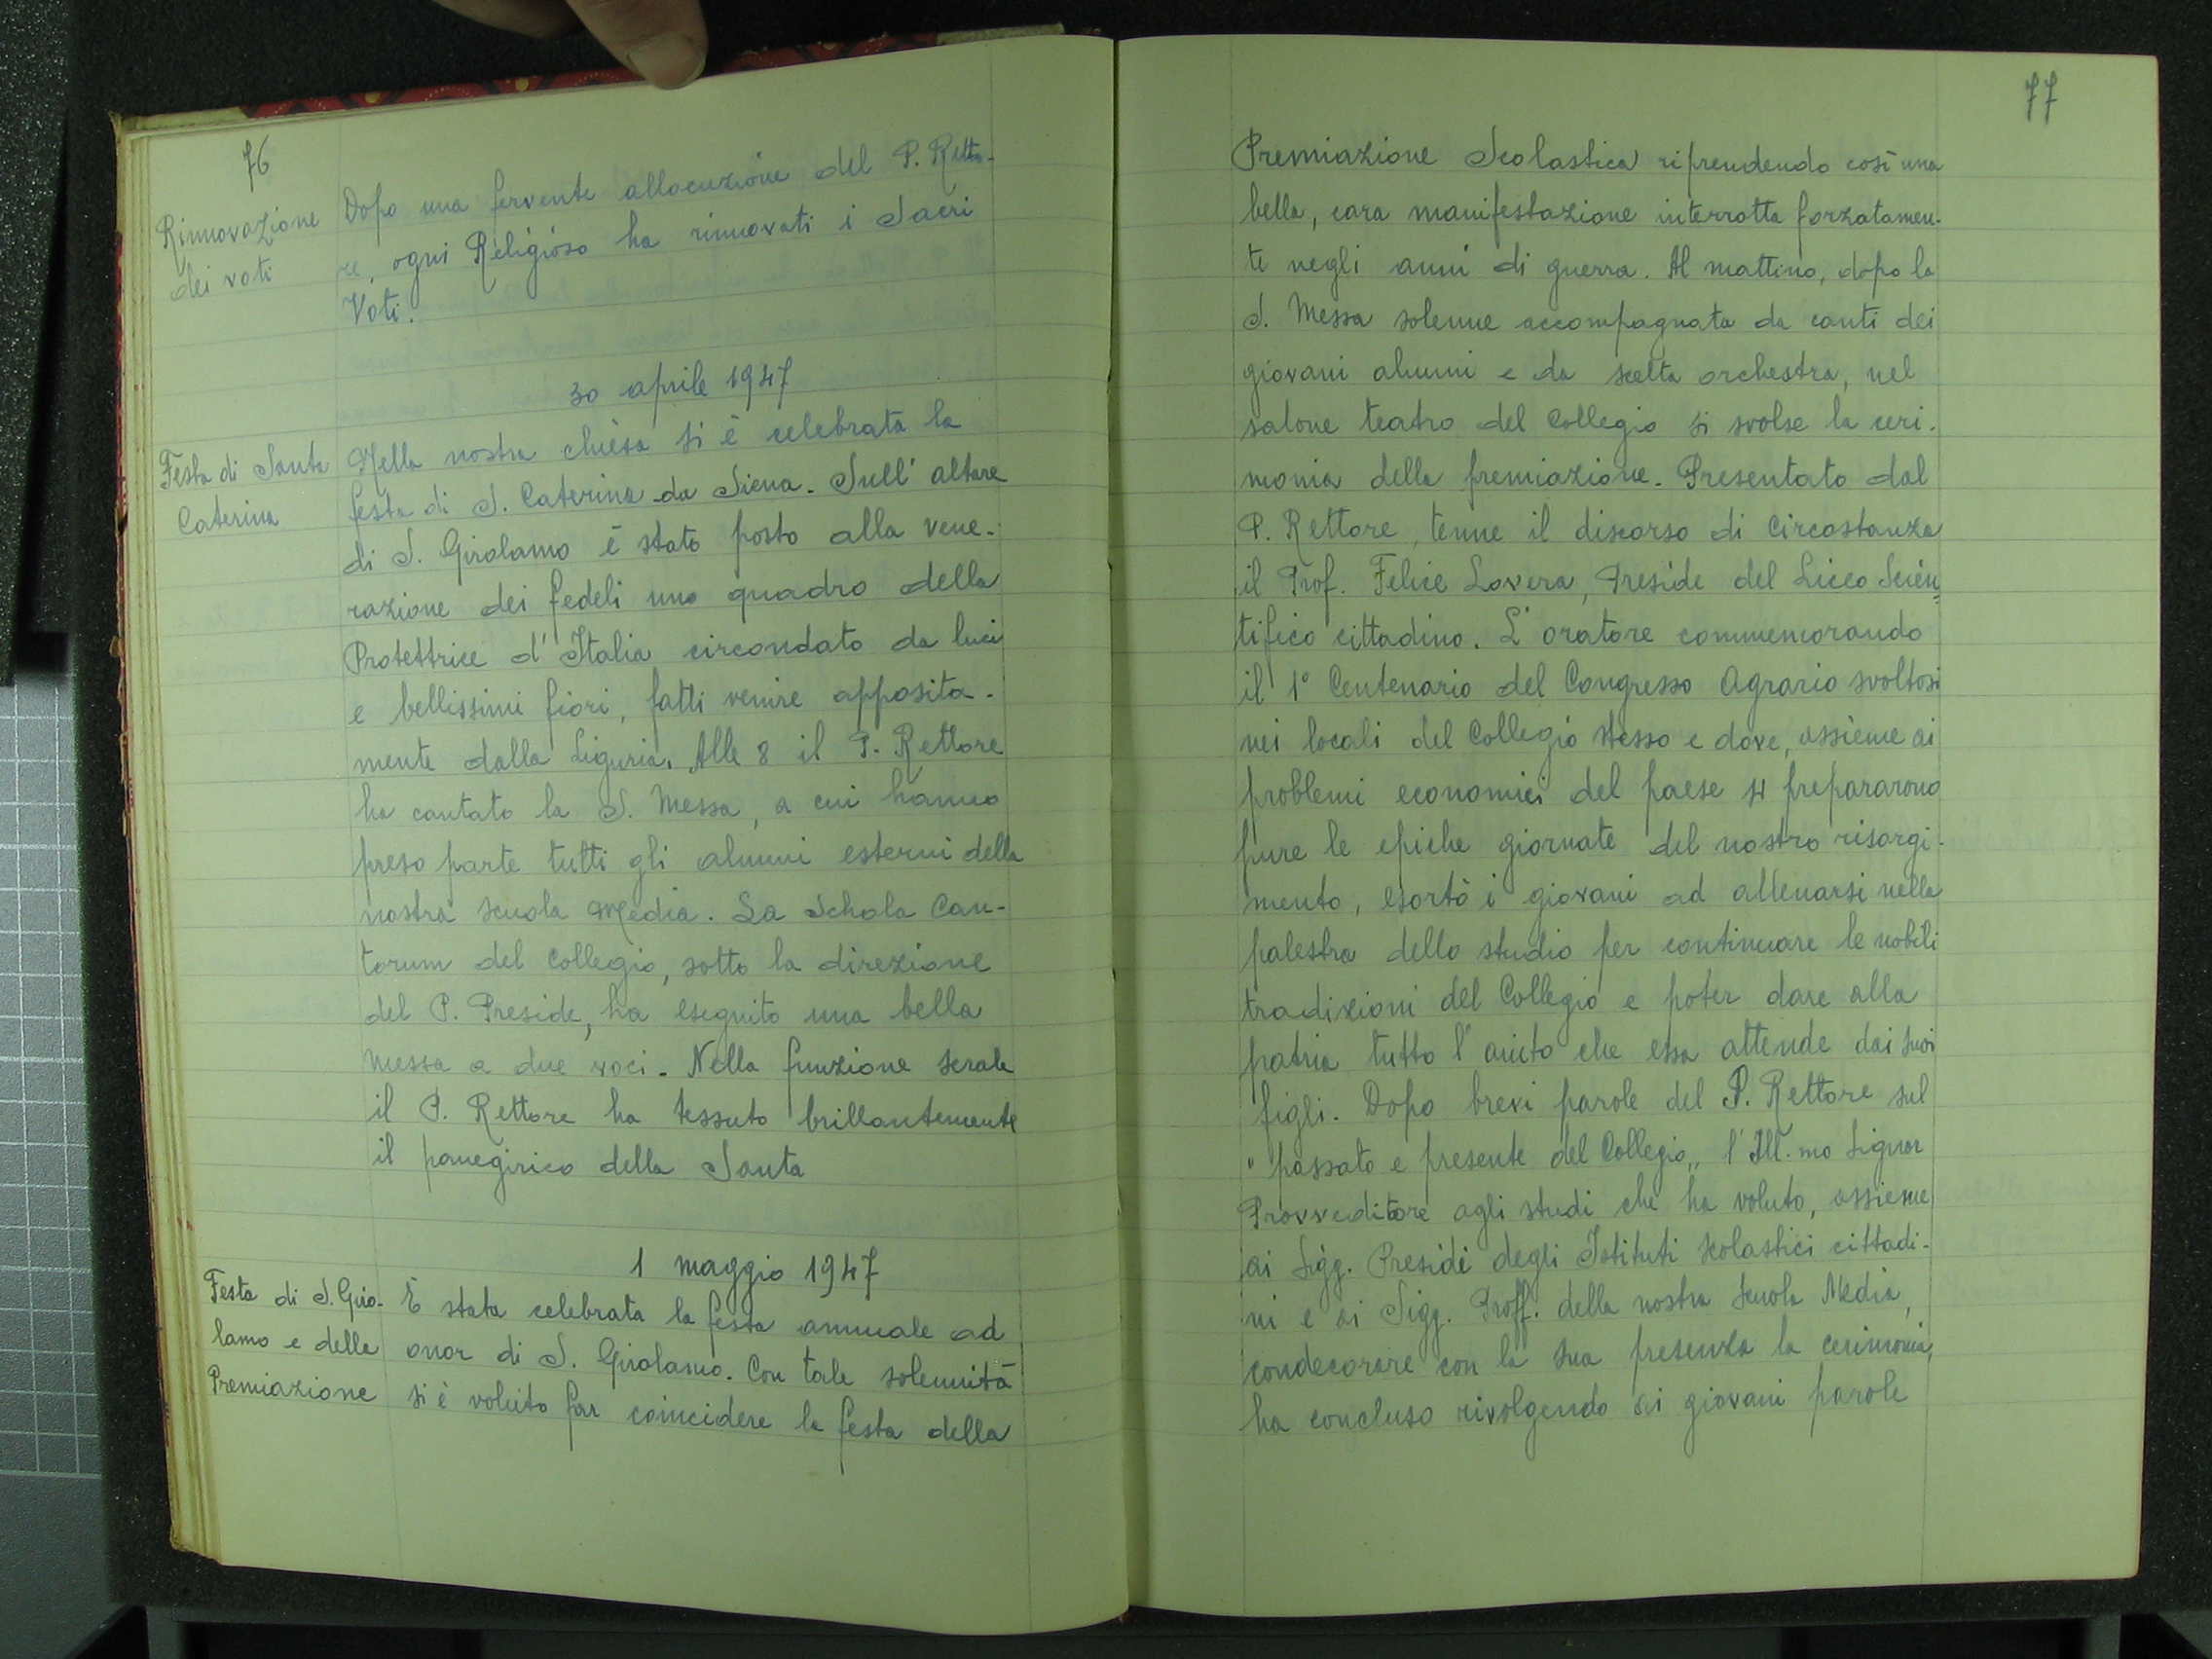 76
Rinnovazione
dei voti
Dopo una fervente allocuzione del P. Retto-
re, ogni Religioso ha rinnovati i Sacri
Voti.
30 aprile 1947
Festa di Santa
Caterina
Nella nostra chiesa si è celebrata la
festa di S. Caterina da Siena. Sull' altare
di S. Girolamo è stato posto alla vene-
razione dei fedeli uno quadro della
Protettrice d' Italia circondato da luci
e bellissimi fiori, fatti venire apposita-
mente dalla Liguria. Alle 8 il P. Rettore
ha cantato la S. Messa, a cui hanno
preso parte tutti gli alunni esterni della
nostra scuola Media. La Schola Can-
torum del Collegio, sotto la direzione
del P. Preside, ha eseguito una bella
messa a due voci. Nella funzione serale
il P. Rettore ha tessuto brillantemente
il panegirico della Santa
1 maggio 1947
Festa di S. Giro-
lamo e della
Premiazione
È stata celebrata la festa annuale ad
onor di S. Girolamo. Con tale solennità
si è voluto far coincidere la festa della
77
Premiazione Scolastica riprendendo così una
bella, cara manifestazione interrotta forzatamen-
te negli anni di guerra. Al mattino, dopo la
S. Messa solenne accompagnata da canti dei
giovani alunni e da scelta orchestra, nel
salone teatro del Collegio si svolse la ceri-
monia della premiazione. Presentato dal
P. Rettore, tenne il discorso di Circostanza
il Prof. Felice Lovera, Preside del Liceo Scien-
tifico cittadino. L' oratore commemorando
il 1° Centenario del Congresso Agrario svoltosi
nei locali del Collegio stesso e dove, assieme ai
problemi economici del paese si prepararono
pure le epiche giornate del nostro risorgi-
mento, esortò i giovani ad allenarsi nella
palestra dello studio per continuare le nobili
tradizioni del Collegio e poter dare alla
patria tutto l' aiuto che essa attende dai suoi
figli. Dopo brevi parole del P. Rettore sul
"passato e presente del Collegio„ l' Ill.mo Signor
Provveditore agli studi che ha voluto, assieme
ai Sigg. Presidi degli Istituti scolastici cittadi-
ni e ai Sigg. Proff. della nostra Scuola Media,
condecorare con la sua presenza la cerimonia,
ha concluso rivolgendo ai giovani parole